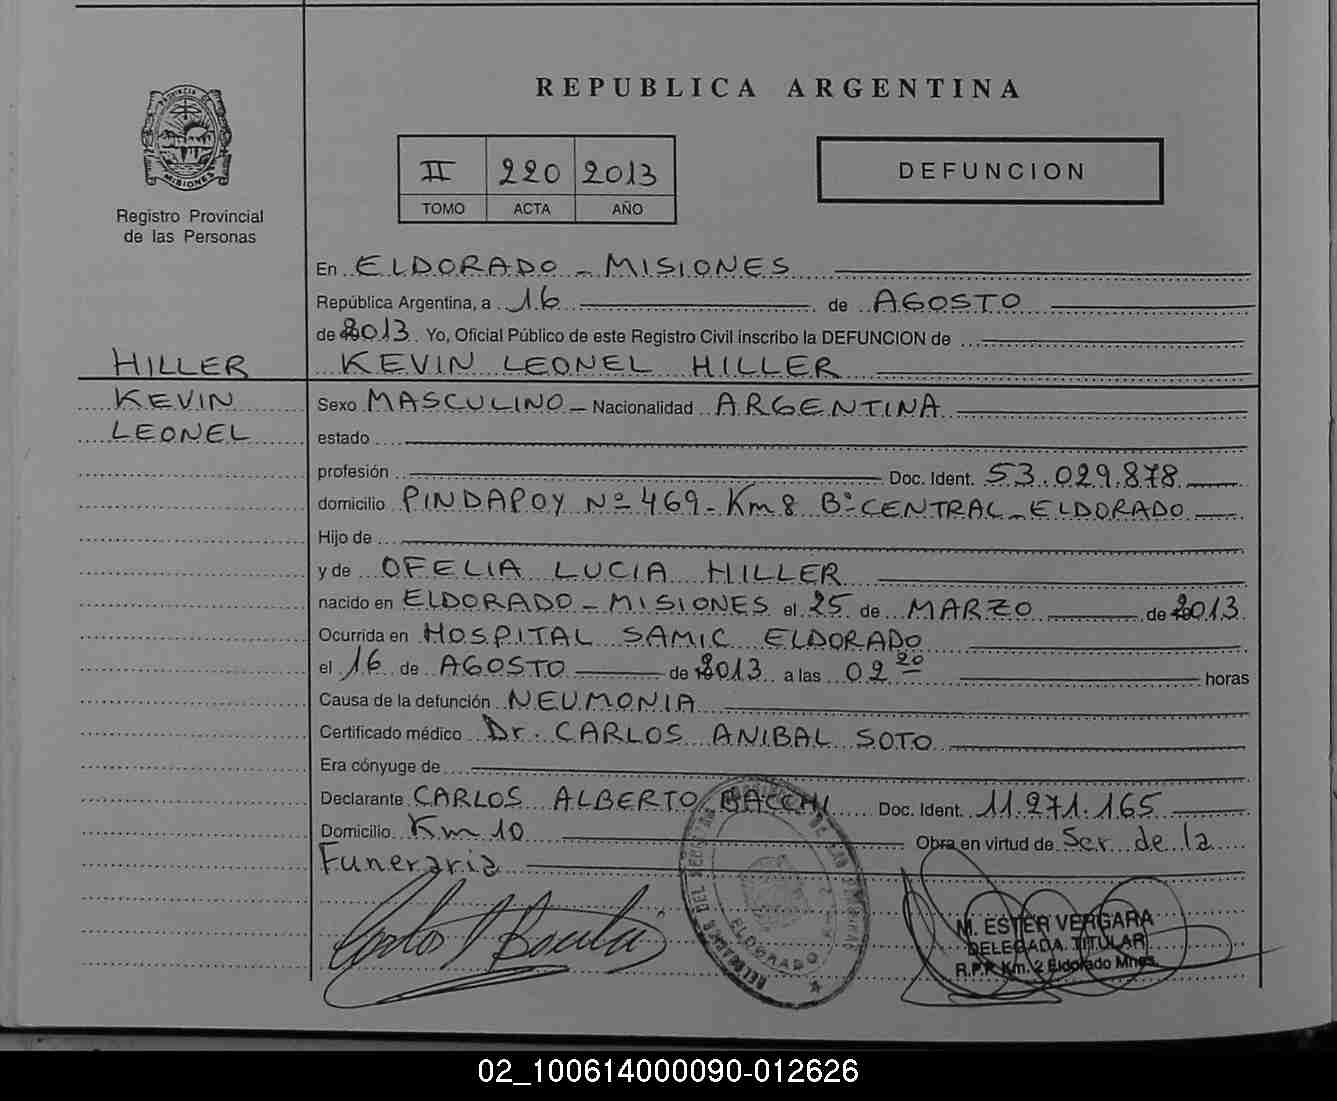 REPUBLICA ARGENTINA
PROVINCIA DE
MISIONES
Registro Provincial
de las Personas
II 220 2013
TOMO ACTA AÑO
DEFUNCION
En ELDORADO - MISIONES
República Argentina, a 16 de AGOSTO
de 2013 Yo, Oficial Público de este Registro Civil inscribo la DEFUNCION de
KEVIN LEONEL HILLER
HILLER
KEVIN
LEONEL
Sexo MASCULINO - Nacionalidad ARGENTINA
estado
profesión Doc. Ident. 53.029.878
domicilio PINDAPOY Nº 469 - Km 8 Bº CENTRAL - ELDORADO
Hijo de
y de OFELIA LUCIA HILLER
nacido en ELDORADO - MISIONES el 25 de MARZO de 2013
Ocurrida en HOSPITAL SAMIC ELDORADO
el 16 de AGOSTO de 2013 a las 02 20 horas
Causa de la defunción NEUMONIA
Certificado médico Dr. CARLOS ANIBAL SOTO
Era cónyuge de
Declarante CARLOS ALBERTO BACCHI Doc. Ident. 11.271.165
Domicilio Km 10 Obra en virtud de Ser de la
Funeraria
ELDORADO
M. ESTER VERGARA
DELEGADA TITULAR
R.P.P. Km. 2 Eldorado Mnes.
02_100614000090-012626